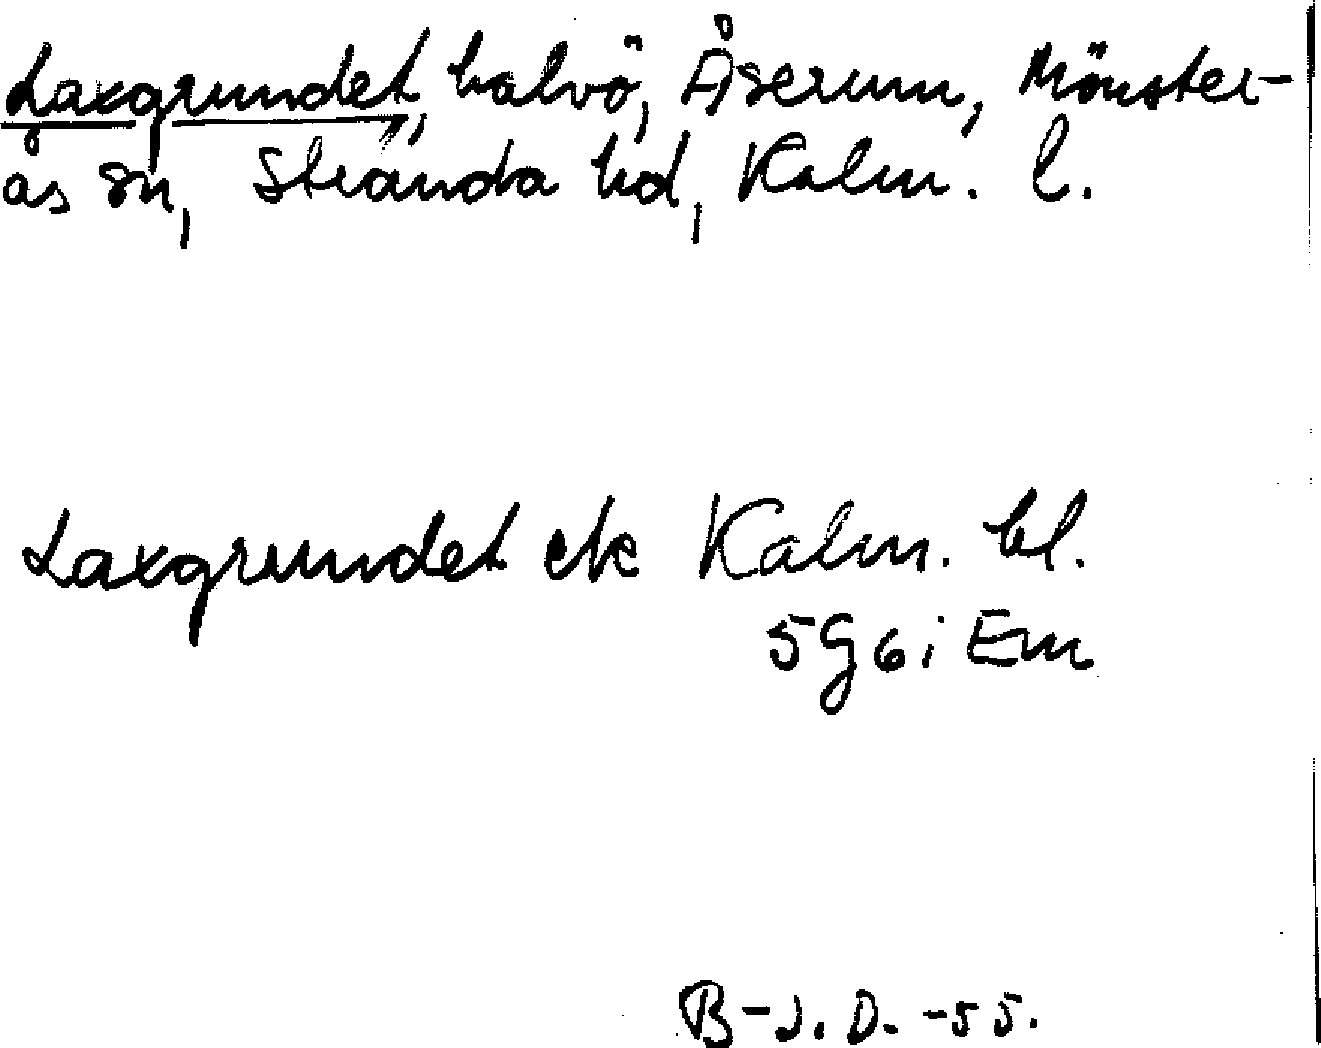 Laxgrundet, halvö, Åserum, Mönster-
ås sn, Stranda hd, Kalm. l.
Laxgrundet ek Kalm. bl.
5G6i Em
B-J.D. -55.